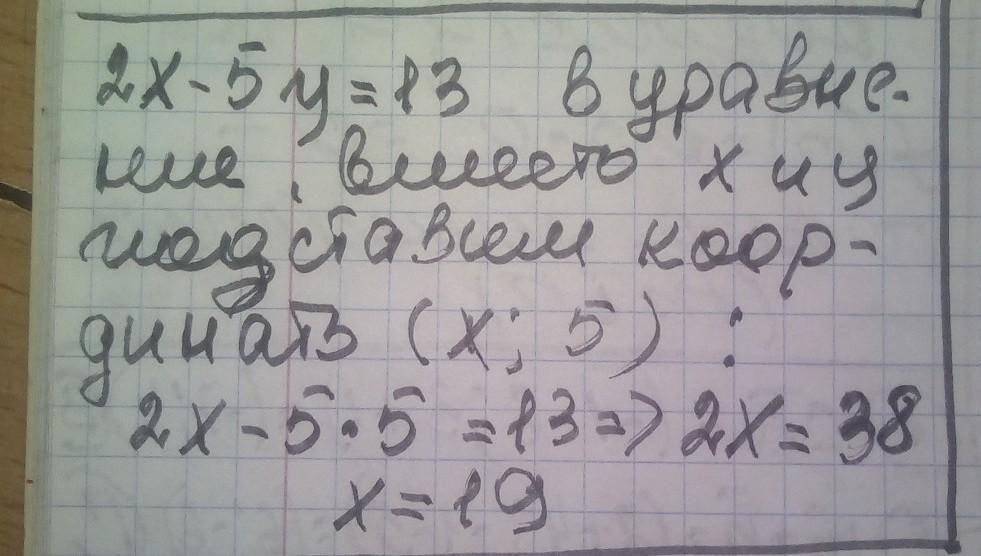 2х-5у=13 в уравне-
ние, вместо х и у
подставим коор-
динаты (х; 5) :
2х-5·5 =13=> 2х= 38
х=19